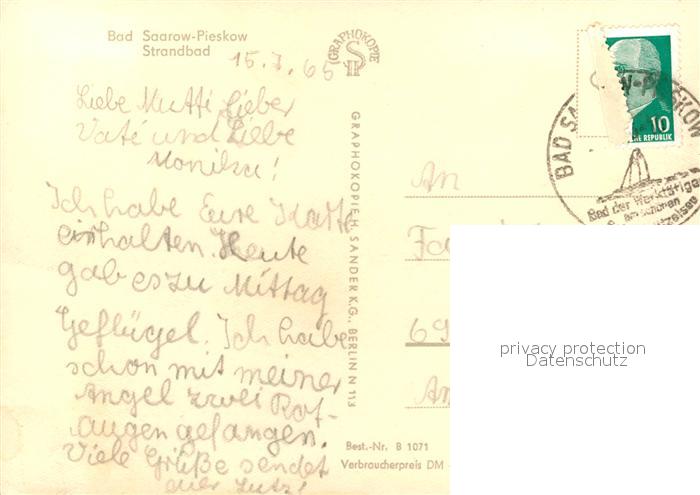 Bad Saarow-Pieskow
Strandbad
15.7.65
GRAPHOKOPIE
H S
Liebe Mutti Lieber
Vati und Liebe
Monika!
Ich habe Eure Karte
erhalten. Heute
gab es zu Mittag
Geflügel. Ich habe
schon mit meiner
Angel zwei Rot-
augen gefangen.
Viele Grüße sendet
euer Lutz!
GRAPHOKOPIE H. SANDER K.G., BERLIN N 113
Best.-Nr. B 1071
Verbraucherpreis DM
10
REPUBLIK
BAD SA
KOW
Bad der Werktätigen
am schönen
An
Fa
69
An
privacy protection
Datenschutz